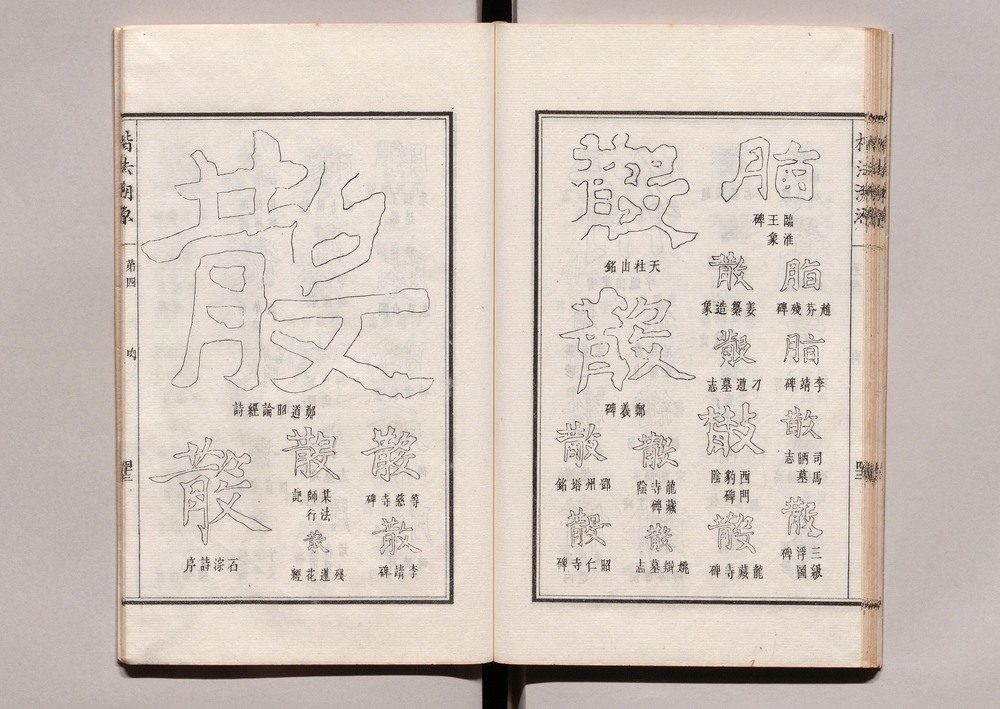 楷法溯源
脂
臨淮王象碑
脂
趙芬殘碑
脂
李靖碑
散
司馬昞墓志
散
三級浮圖碑
散
姜纂造象
散
刁遵墓志
散
西門豹碑陰
散
龍藏寺碑
散
天柱山銘
散
鄭羲碑
散
龍藏寺碑陰
散
姚辯墓志
散
鄧州塔銘
散
昭仁寺碑
散
鄭道昭論經詩
散
等慈寺碑
散
李靖碑
散
某法師行記
散
殘蓮花經
散
石淙詩序
楷法溯源
第四
肉